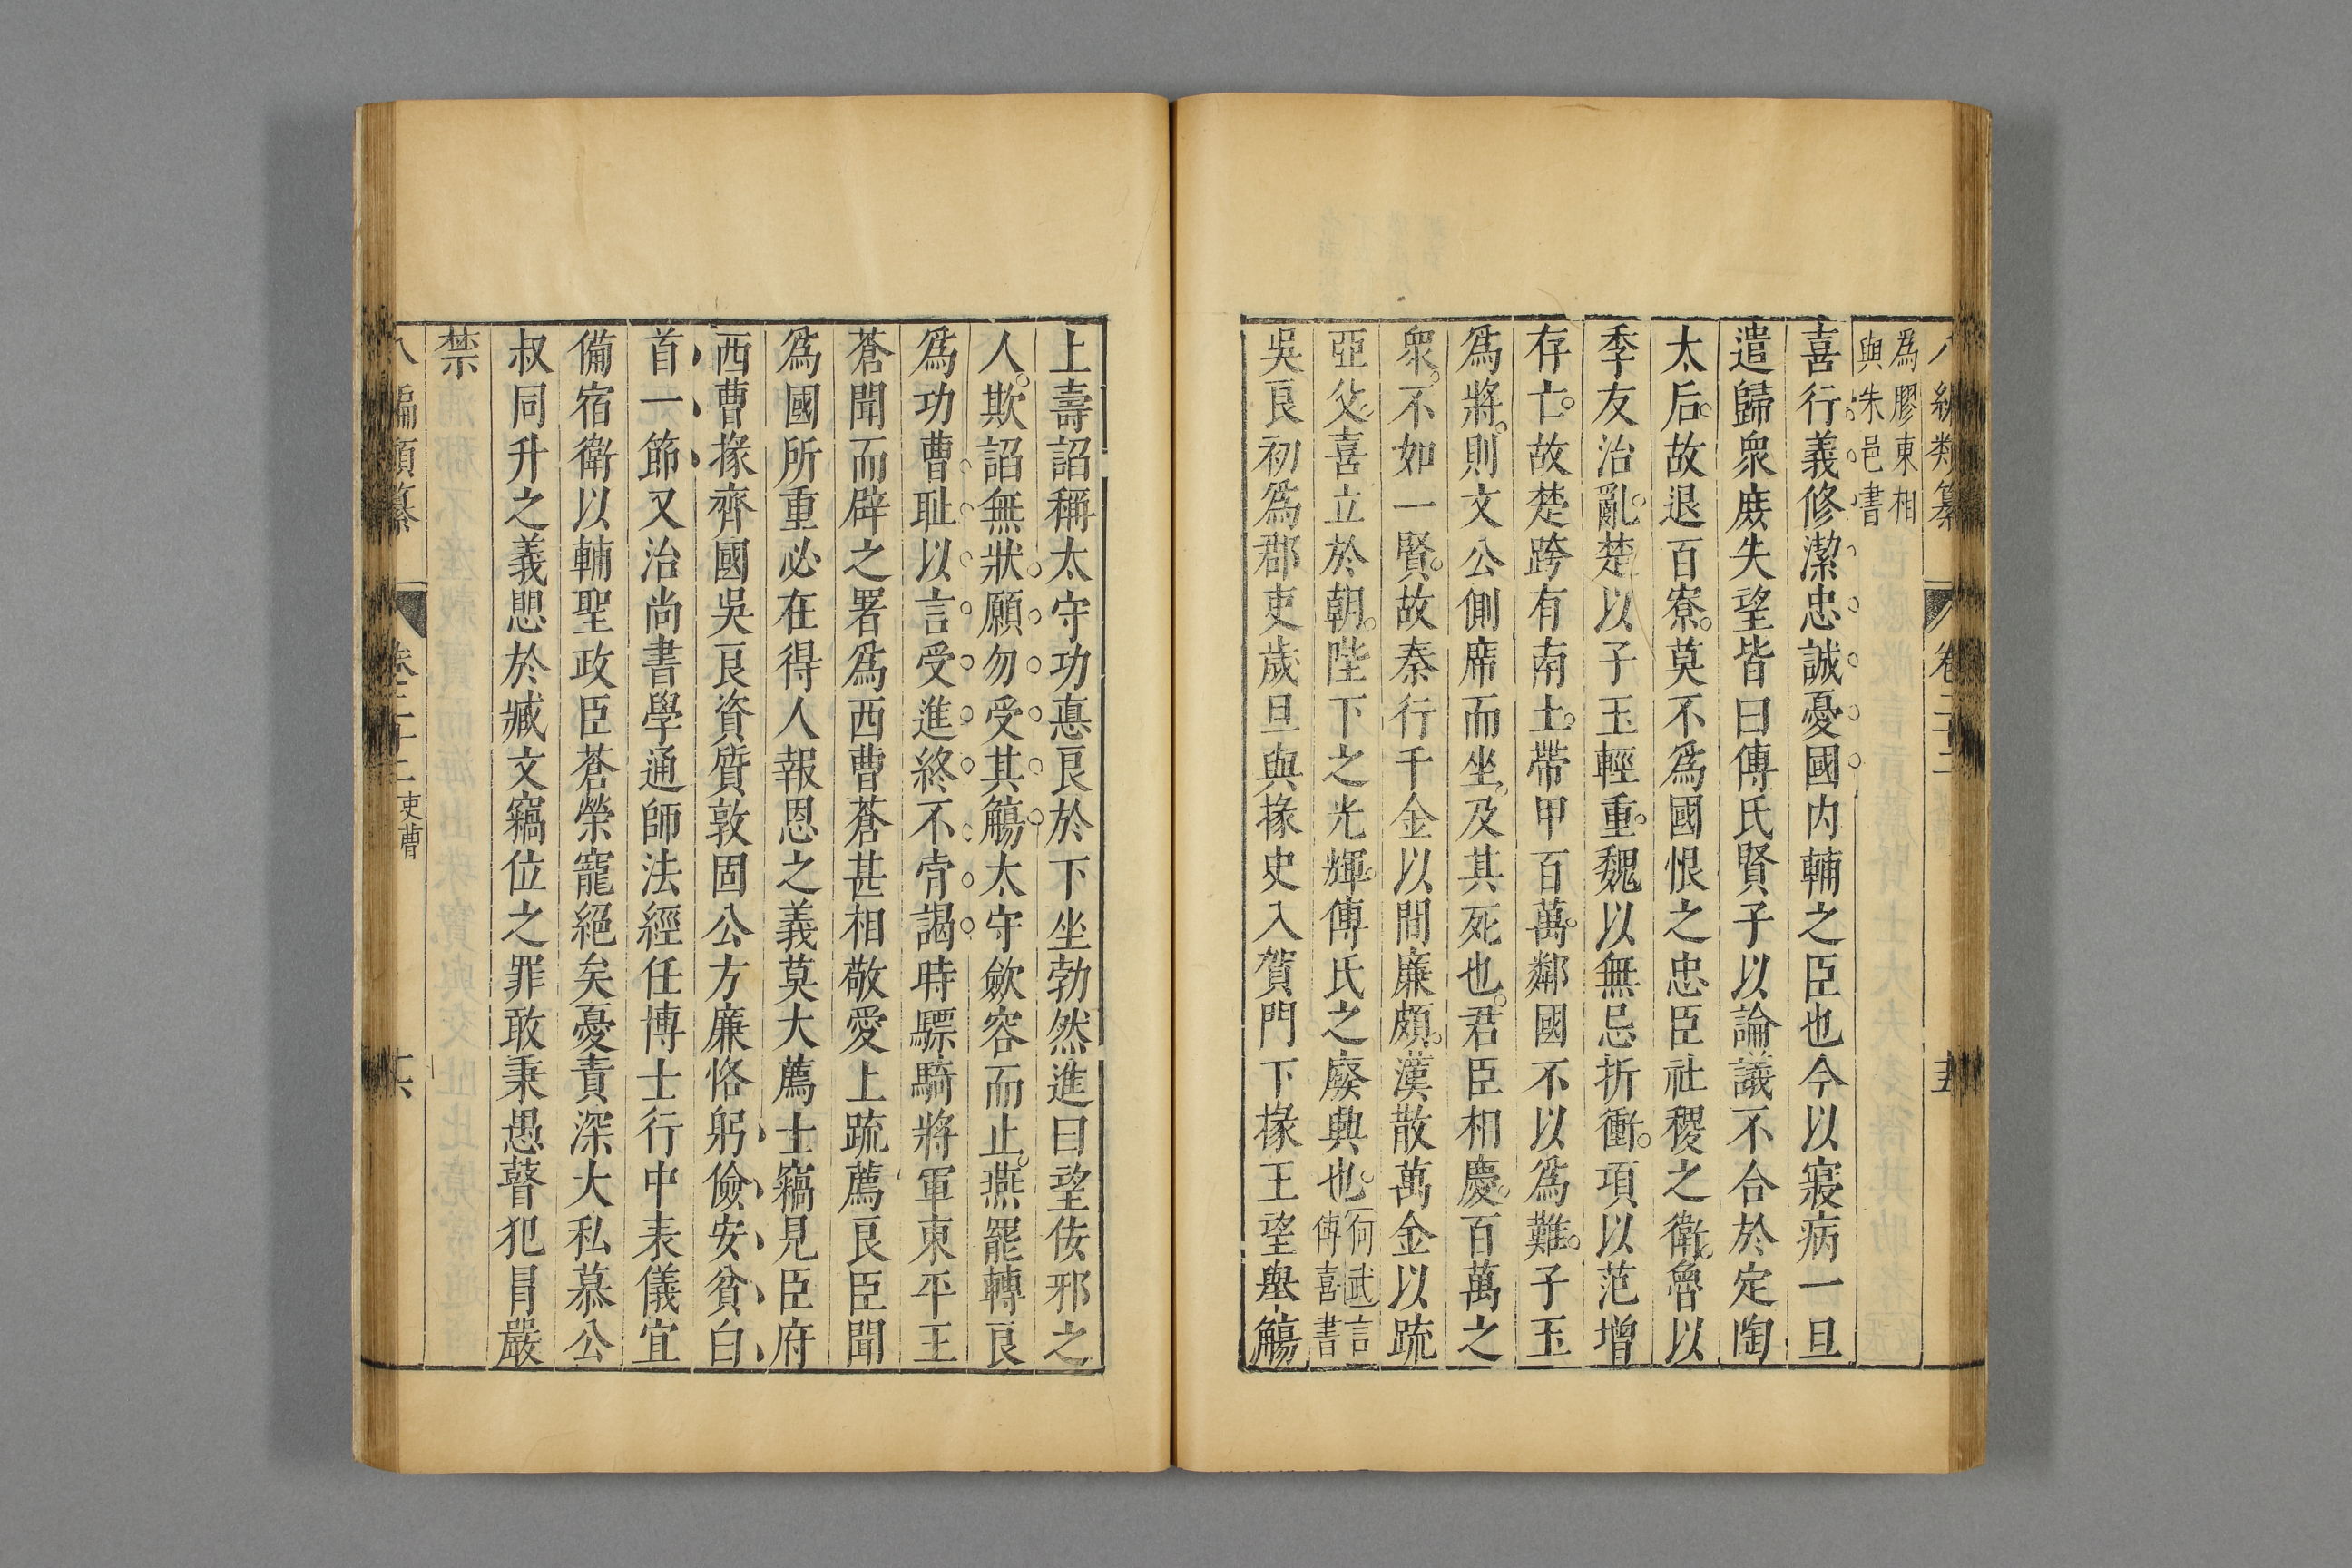 為膠東相
與朱邑書
喜行義修潔忠誠憂國内輔之臣也今以寢病一旦
遣歸衆庻失望皆曰傅氏賢子以論議不合於定陶
太后故退百寮莫不爲國恨之忠臣社稷之衛魯以
季友治亂楚以子玉輕重魏以無忌折衝項以范增
存亡故楚跨有南土帶甲百萬鄰國不以爲難子玉
爲將則文公側席而坐及其死也君臣相慶百萬之
衆不如一賢故秦行千金以間廉頗漢散萬金以疏
亞父喜立於朝陛下之光輝傅氏之廢興也何武言
傅喜書
吳良初爲郡吏歲旦與掾史入賀門下掾王望舉觴
上壽詔稱太守功悳良於下坐勃然進曰望佞邪之
人欺諂無狀願勿受其觴太守歛容而止燕罷轉良
爲功曹耻以言受進終不肯謁時驃騎將軍東平王
蒼聞而辟之署爲西曹蒼甚相敬愛上疏薦良臣聞
爲國所重必在得人報恩之義莫大薦士竊見臣府
西曹掾齊國吳良資質敦固公方廉恪躬儉安貧白
首一節又治尚書學通師法經任博士行中表儀宜
備宿衛以輔聖政臣蒼榮寵絕矣憂責深大私慕公
叔同升之義懼於臧文竊位之罪敢秉愚瞽犯冒嚴
禁
八編類纂 卷二十二 吏曹